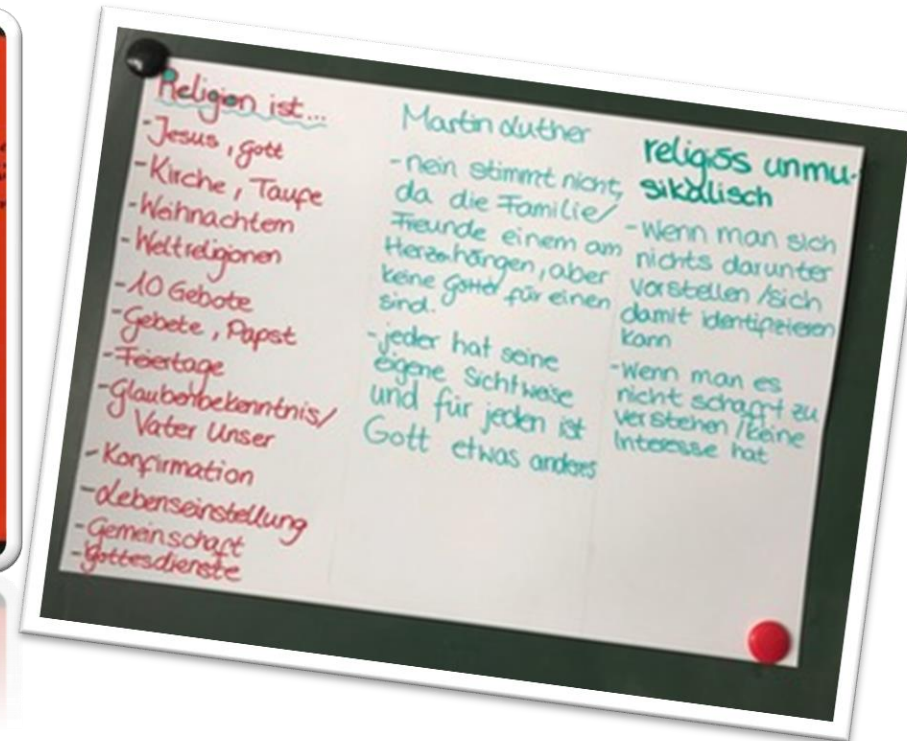 Religion ist...
- Jesus, Gott
- Kirche, Taufe
- Weihnachten
- Weltreligionen
- 10 Gebote
- Gebete, Papst
- Feiertage
- Glaubenbekenntnis/
Vater Unser
- Konfirmation
- Lebenseinstellung
- Gemeinschaft
- Gottesdienste
Martin Luther
- nein stimmt nicht,
da die Familie/
Freunde einem am
Herzen hängen, aber
keine Götter für einen
sind.
- jeder hat seine
eigene Sichtweise
und für jeden ist
Gott etwas anders
religiös unmu-
sikalisch
- Wenn man sich
nichts darunter
vorstellen /sich
damit identifizieren
kann
- Wenn man es
nicht schafft zu
verstehen /keine
Interesse hat